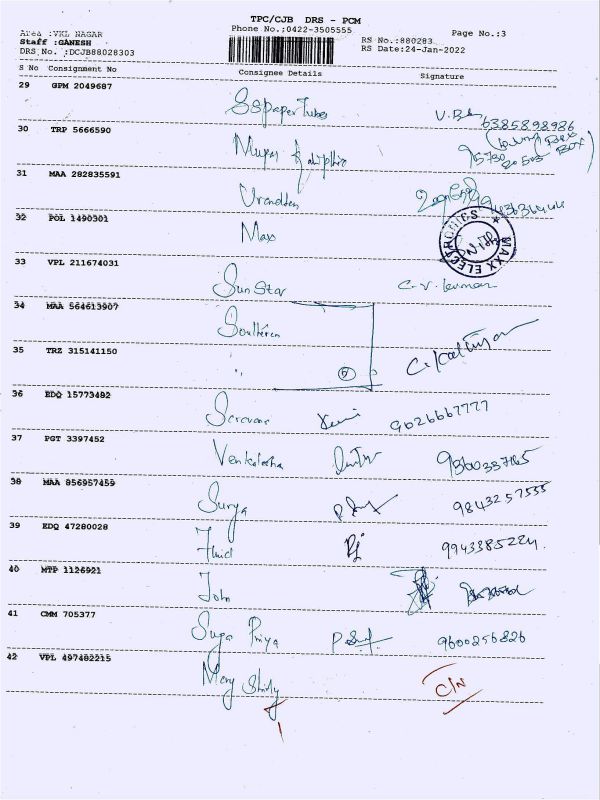 TPC/CJB DRS - PCM
Phone No.;0422-3505555
Page No.:3
Area :VKL NAGAR
Staff :GANESH
RS No.:880283
DRS No. :DCJB88028303
RS Date:24-Jan-2022
S No Consignment No Consignee Details Signature
29 GPM 2049687 SS paper Tubes 6385898986
30 TRP 5666590
31 MAA 282835591
32 POL 1490301 Maxx
MAXX ELECTRONICS
33 VPL 211674031 Sun Star C.V. kumar
34 MAA 564613907 Southern
35 TRZ 315141150 " 5
36 EDQ 15773482 Saravana 9026667777
37 PGT 3397452 Venkatesha 9360337185
38 MAA 856957459 Surya 9843257555
39 EDQ 47280028 9943385224
40 MTP 1126921 John
41 CMM 705377 Suga Priya 9600256826
42 VPL 497482215 Mary Shirly C/N